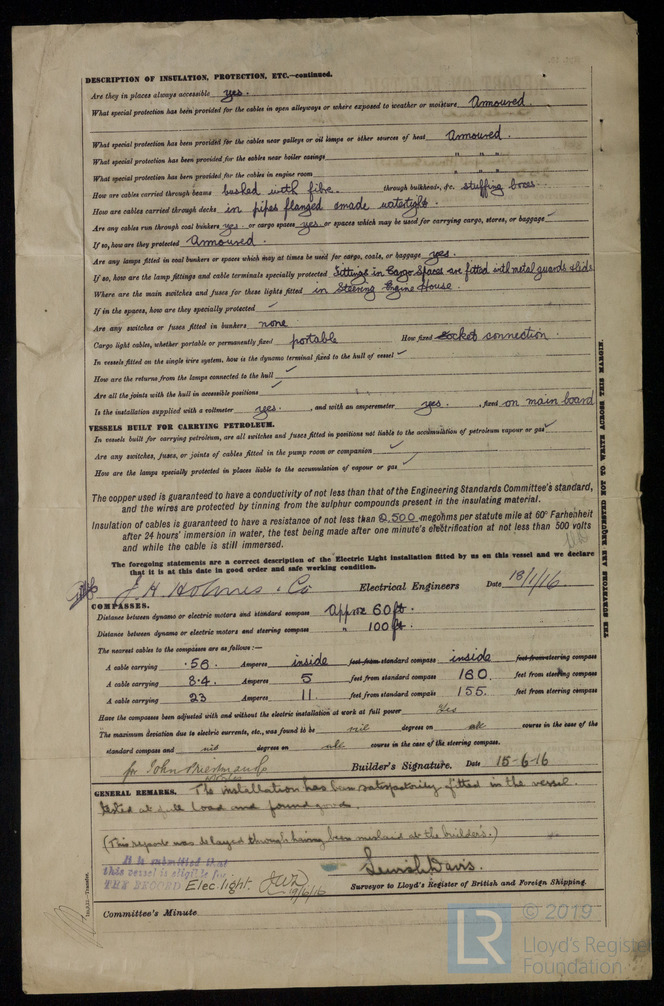 DESCRIPTION OF INSULATION, PROTECTION, ETC.—continued.
Are they in places always accessible yes.
What special protection has been provided for the cables in open alleyways or where exposed to weather or moisture Armoured.
What special protection has been provided for the cables near galleys or oil lamps or other sources of heat Armoured.
What special protection has been provided for the cables near boiler casings " " "
What special protection has been provided for the cables in engine room " " "
How are cables carried through beams bushed with fibre. through bulkheads, &c. stuffing boxes.
How are cables carried through decks in pipes flanged & made watertight.
Are any cables run through coal bunkers yes or cargo spaces yes or spaces which may be used for carrying cargo, stores, or baggage ✓
If so, how are they protected Armoured.
Are any lamps fitted in coal bunkers or spaces which may at times be used for cargo, coals, or baggage yes.
If so, how are the lamp fittings and cable terminals specially protected Fittings in Cargo Spaces are fitted with metal guards & lids
Where are the main switches and fuses for these lights fitted in Steering Engine House.
If in the spaces, how are they specially protected ✓
Are any switches or fuses fitted in bunkers none
Cargo light cables, whether portable or permanently fixed portable How fixed socket connection.
In vessels fitted on the single wire system, how is the dynamo terminal fixed to the hull of vessel ✓
How are the returns from the lamps connected to the hull ✓
Are all the joints with the hull in accessible positions ✓
Is the installation supplied with a voltmeter yes. , and with an amperemeter yes. , fixed on main board
VESSELS BUILT FOR CARRYING PETROLEUM.
In vessels built for carrying petroleum, are all switches and fuses fitted in positions not liable to the accumulation of petroleum vapour or gas ✓
Are any switches, fuses, or joints of cables fitted in the pump room or companion ✓
How are the lamps specially protected in places liable to the accumulation of vapour or gas ✓
The copper used is guaranteed to have a conductivity of not less than that of the Engineering Standards Committee's standard,
and the wires are protected by tinning from the sulphur compounds present in the insulating material.
Insulation of cables is guaranteed to have a resistance of not less than 2,500 megohms per statute mile at 60° Farhenheit
after 24 hours' immersion in water, the test being made after one minute's electrification at not less than 500 volts
and while the cable is still immersed.
The foregoing statements are a correct description of the Electric Light installation fitted by us on this vessel and we declare
that it is at this date in good order and safe working condition.
J. H. Holmes & Co Electrical Engineers Date 18/1/16.
COMPASSES.
Distance between dynamo or electric motors and standard compass Approx 60 ft.
Distance between dynamo or electric motors and steering compass " 100 ft.
The nearest cables to the compasses are as follows:—
A cable carrying .56 Amperes inside feet from standard compass inside feet from steering compass
A cable carrying 8.4 Amperes 5 feet from standard compass 160 feet from steering compass
A cable carrying 23 Amperes 11 feet from standard compass 155 feet from steering compass
Have the compasses been adjusted with and without the electric installation at work at full power Yes
The maximum deviation due to electric currents, etc., was found to be nil degrees on all course in the case of the
standard compass and nil degrees on all course in the case of the steering compass.
for John Priestman & Co Builder's Signature. Date 15-6-16
GENERAL REMARKS. The installation has been satisfactorily fitted in the vessel.
tested at full load and found good.
(This report was delayed through having been mislaid at the builders.)
It is submitted that
this vessel is eligible for
THE RECORD Elec. light. 19/6/16
Lewis Davis.
Surveyor to Lloyd's Register of British and Foreign Shipping.
Committee's Minute
THE SURVEYORS ARE REQUESTED NOT TO WRITE ACROSS THIS MARGIN.
© 2019
LR
Lloyd's Register
Foundation